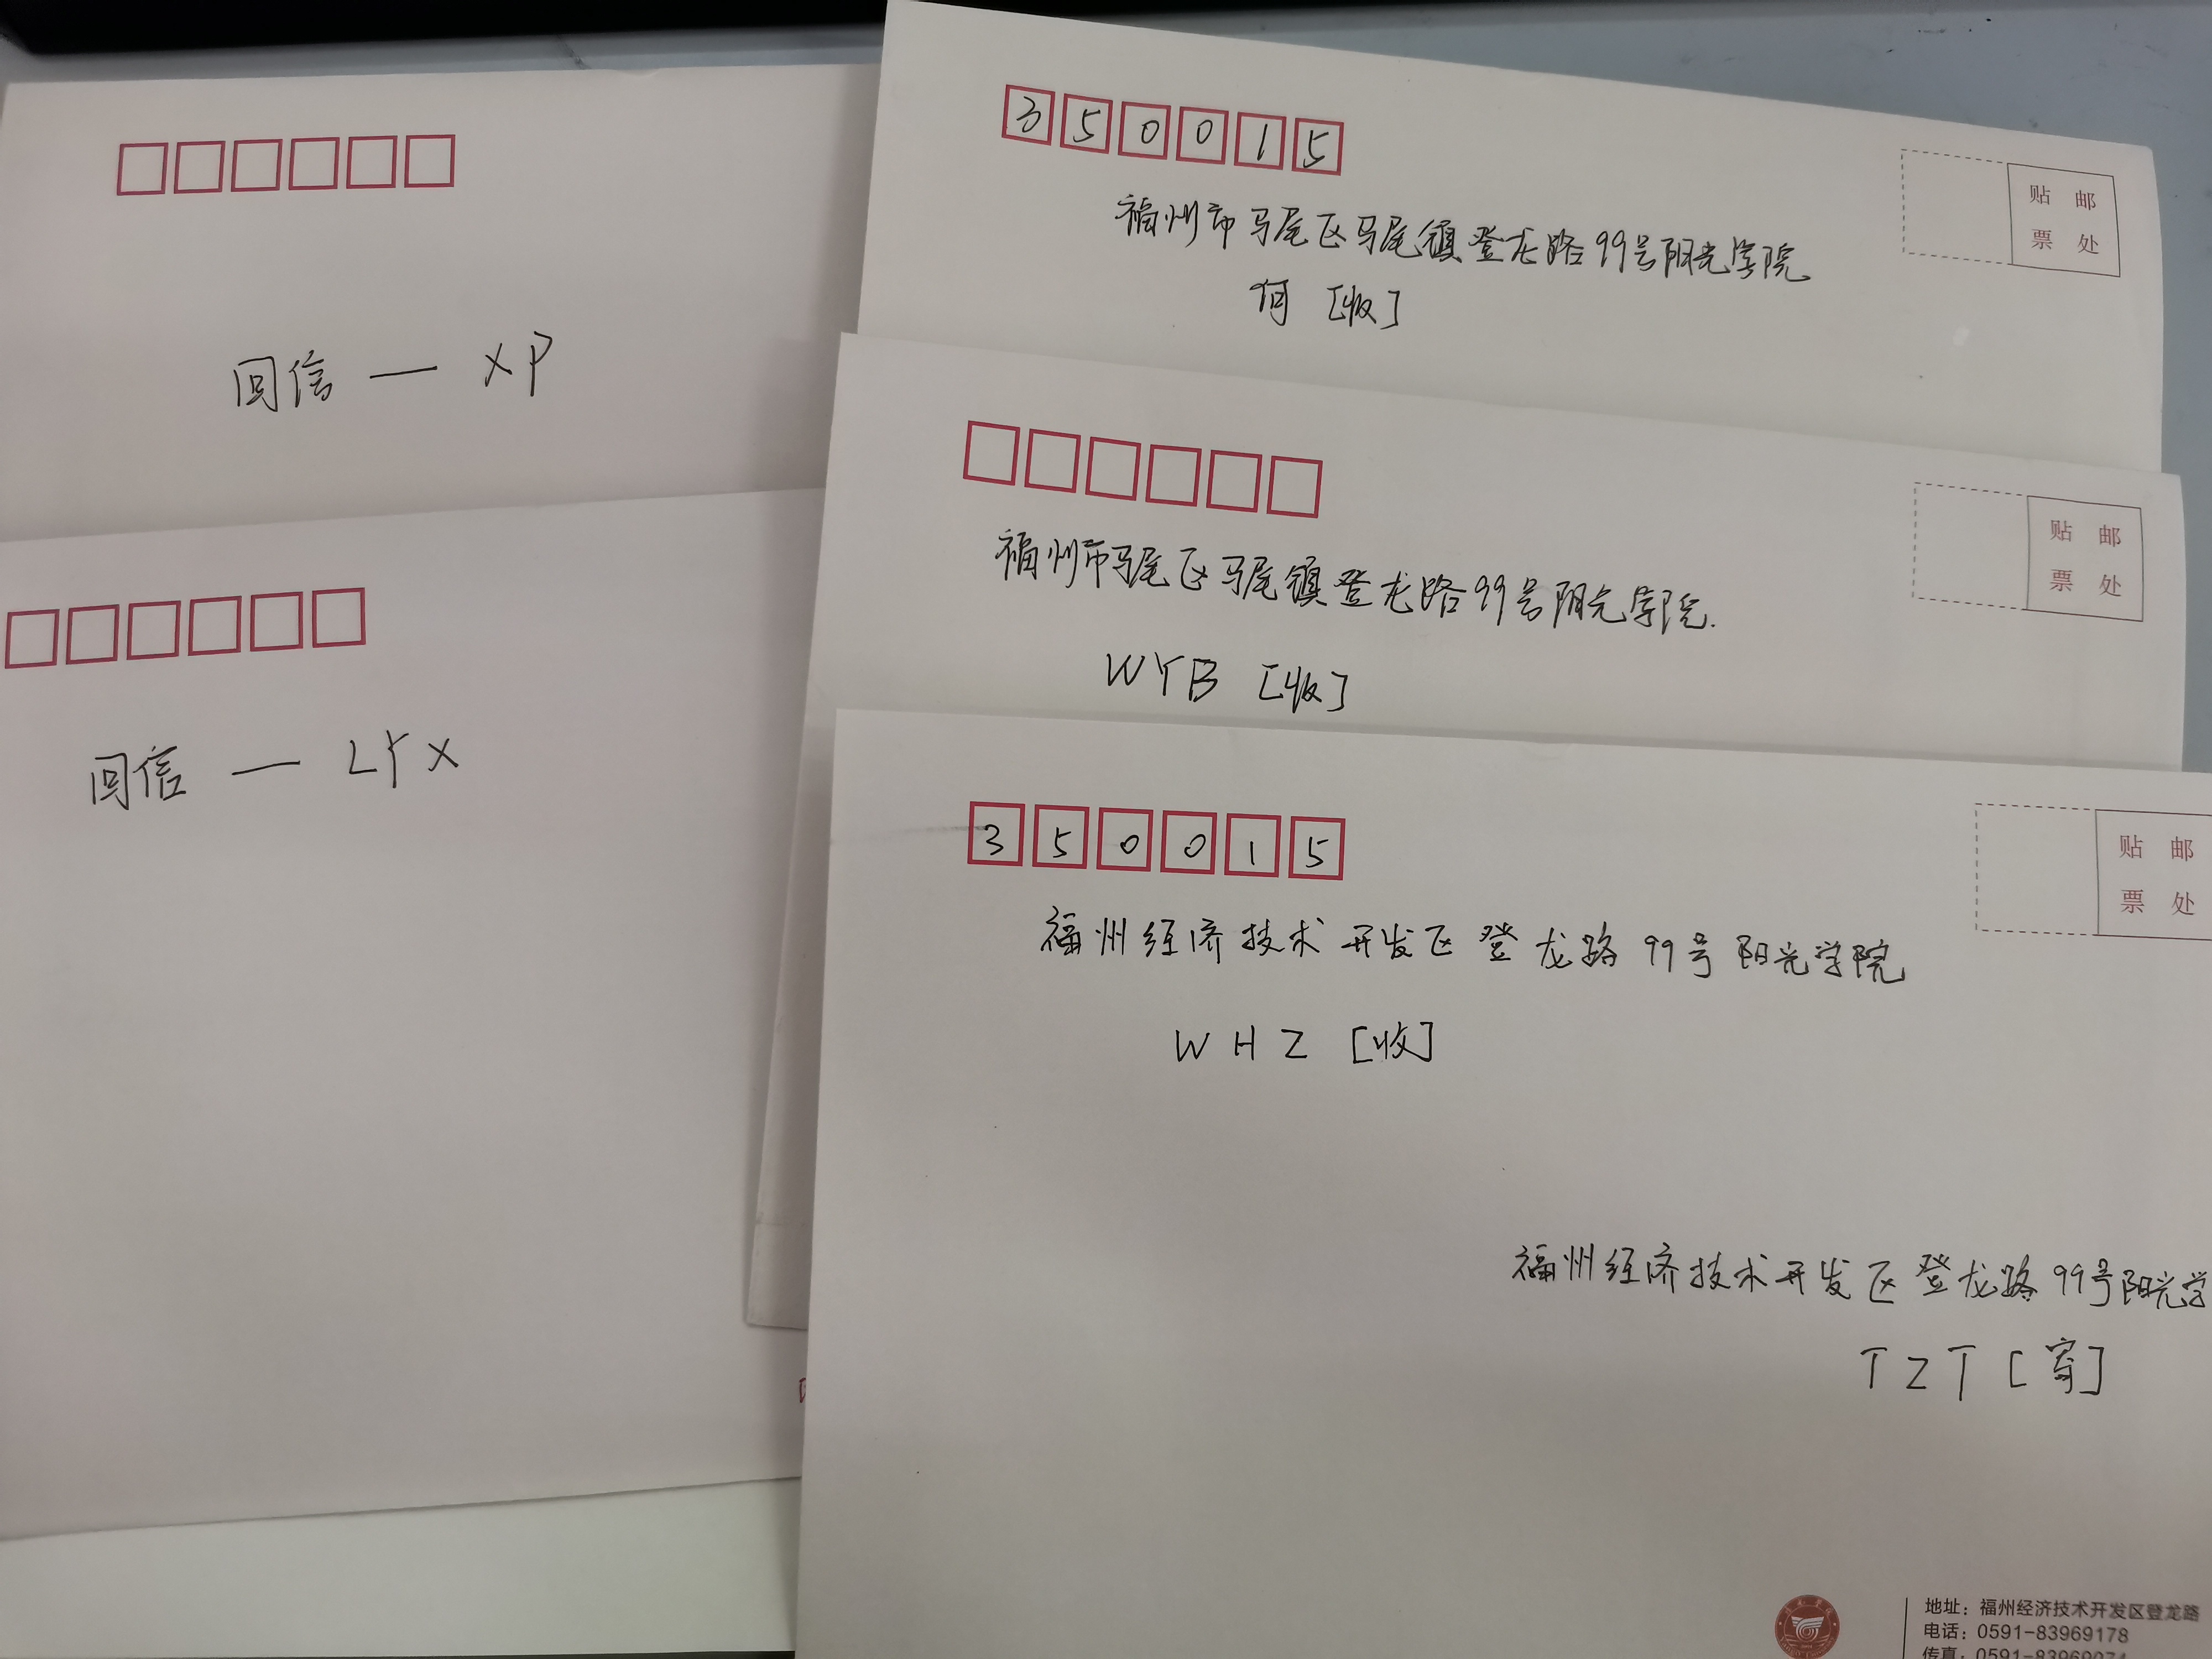 回信 — XP
回信 — LYX
350015
贴 邮
票 处
福州市马尾区马尾镇登龙路99号阳光学院
何 [收]
贴 邮
票 处
福州市马尾区马尾镇登龙路99号阳光学院.
WYB [收]
350015
贴 邮
票 处
福州经济技术开发区登龙路99号阳光学院
WHZ [收]
福州经济技术开发区登龙路99号阳光学
TZT [寄]
地址：福州经济技术开发区登龙路
电话：0591-83969178
传真：0591-83969074